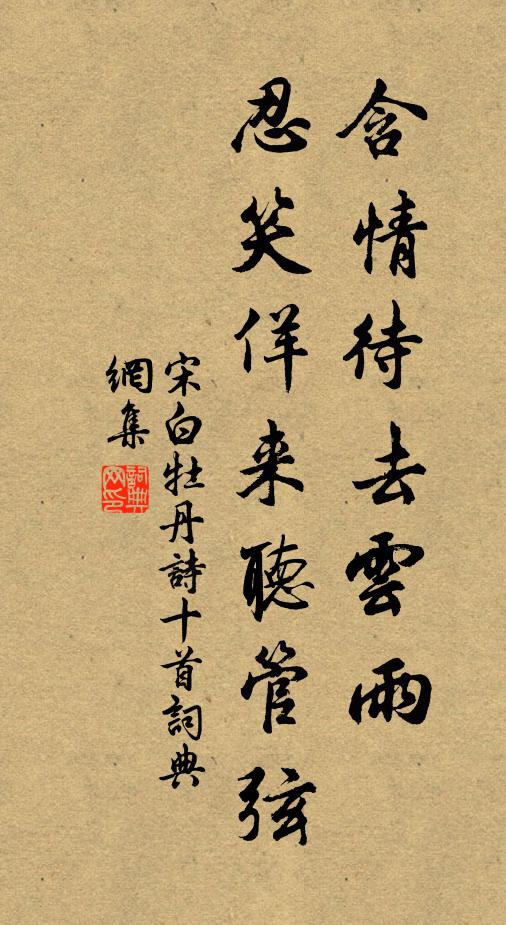 含情待去雲雨
忍笑佯来聽管弦
宋白牡丹詩十首詞典
網集
詞典网印